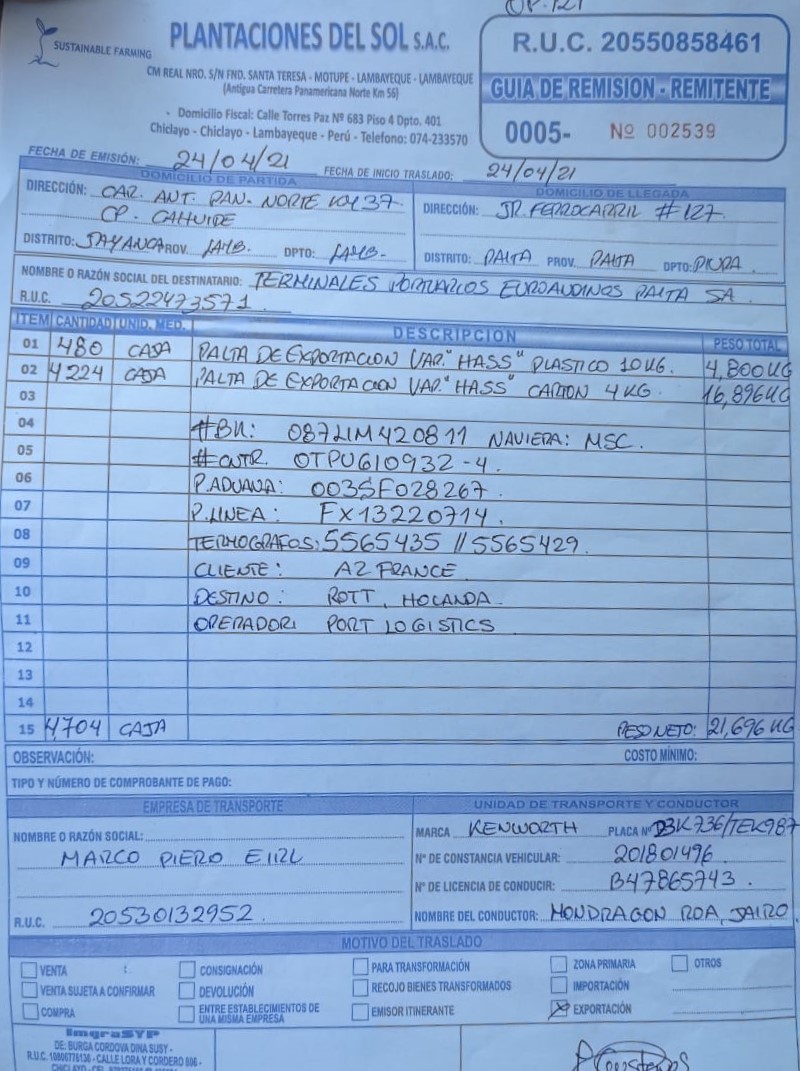 OP. 121
SUSTAINABLE FARMING
PLANTACIONES DEL SOL S.A.C.
CM REAL NRO. S/N FND. SANTA TERESA - MOTUPE - LAMBAYEQUE - LAMBAYEQUE
(Antigua Carretera Panamericana Norte Km 56)
Domicilio Fiscal: Calle Torres Paz Nº 683 Piso 4 Dpto. 401
Chiclayo - Chiclayo - Lambayeque - Perú - Telefono: 074-233570
R.U.C. 20550858461
GUIA DE REMISION - REMITENTE
0005- Nº 002539
FECHA DE EMISIÓN: 24/04/21 FECHA DE INICIO TRASLADO: 24/04/21
DOMICILIO DE PARTIDA
DIRECCIÓN: CAR. ANT. PAN. NORTE KM 37
CP. CAHUIDE
DISTRITO: JAYANCA PROV. LAMB. DPTO: LAMB-
DOMICILIO DE LLEGADA
DIRECCIÓN: JR. FERROCARRIL #127
DISTRITO: PAITA PROV. PAITA DPTO: PIURA
NOMBRE O RAZÓN SOCIAL DEL DESTINATARIO: TERMINALES PORTUARIOS EUROANDINOS PAITA SA
R.U.C. 20522473571
ITEM CANTIDAD UNID. MED. DESCRIPCION PESO TOTAL
01 480 CAJA PALTA DE EXPORTACION VAR. "HASS" PLASTICO 10 KG. 4,800 KG
02 4224 CAJA PALTA DE EXPORTACION VAR. "HASS" CARTON 4 KG. 16,896 KG
03
04 #BK: 087LIM420811 NAVIERA: MSC.
05 #CNTR. OTPU610932-4.
06 P.ADUANA: 003SF028267.
07 P.LINEA: FX13220714.
08 TERMOGRAFOS: 5565435 // 5565429.
09 CLIENTE: AZ FRANCE
10 DESTINO: ROTT, HOLANDA.
11 OPERADOR: PORT LOGISTICS
12
13
14
15 4,704 CAJA PESO NETO: 21,696 KG
OBSERVACIÓN: COSTO MÍNIMO:
TIPO Y NÚMERO DE COMPROBANTE DE PAGO:
EMPRESA DE TRANSPORTE
NOMBRE O RAZÓN SOCIAL:
MARCO PIERO EIRL
R.U.C. 20530132952.
UNIDAD DE TRANSPORTE Y CONDUCTOR
MARCA KENWORTH PLACA Nº D3K736/TEK987
Nº DE CONSTANCIA VEHICULAR: 201801496
Nº DE LICENCIA DE CONDUCIR: B47865743.
NOMBRE DEL CONDUCTOR: MONDRAGON ROA, JAIRO
MOTIVO DEL TRASLADO
VENTA CONSIGNACIÓN PARA TRANSFORMACIÓN ZONA PRIMARIA OTROS
VENTA SUJETA A CONFIRMAR DEVOLUCIÓN RECOJO BIENES TRANSFORMADOS IMPORTACIÓN
COMPRA ENTRE ESTABLECIMIENTOS DE UNA MISMA EMPRESA EMISOR ITINERANTE EXPORTACIÓN
ImgraSYP
DE: BURGA CORDOVA DINA SUSY -
CALLE LORA Y CORDERO 806 -